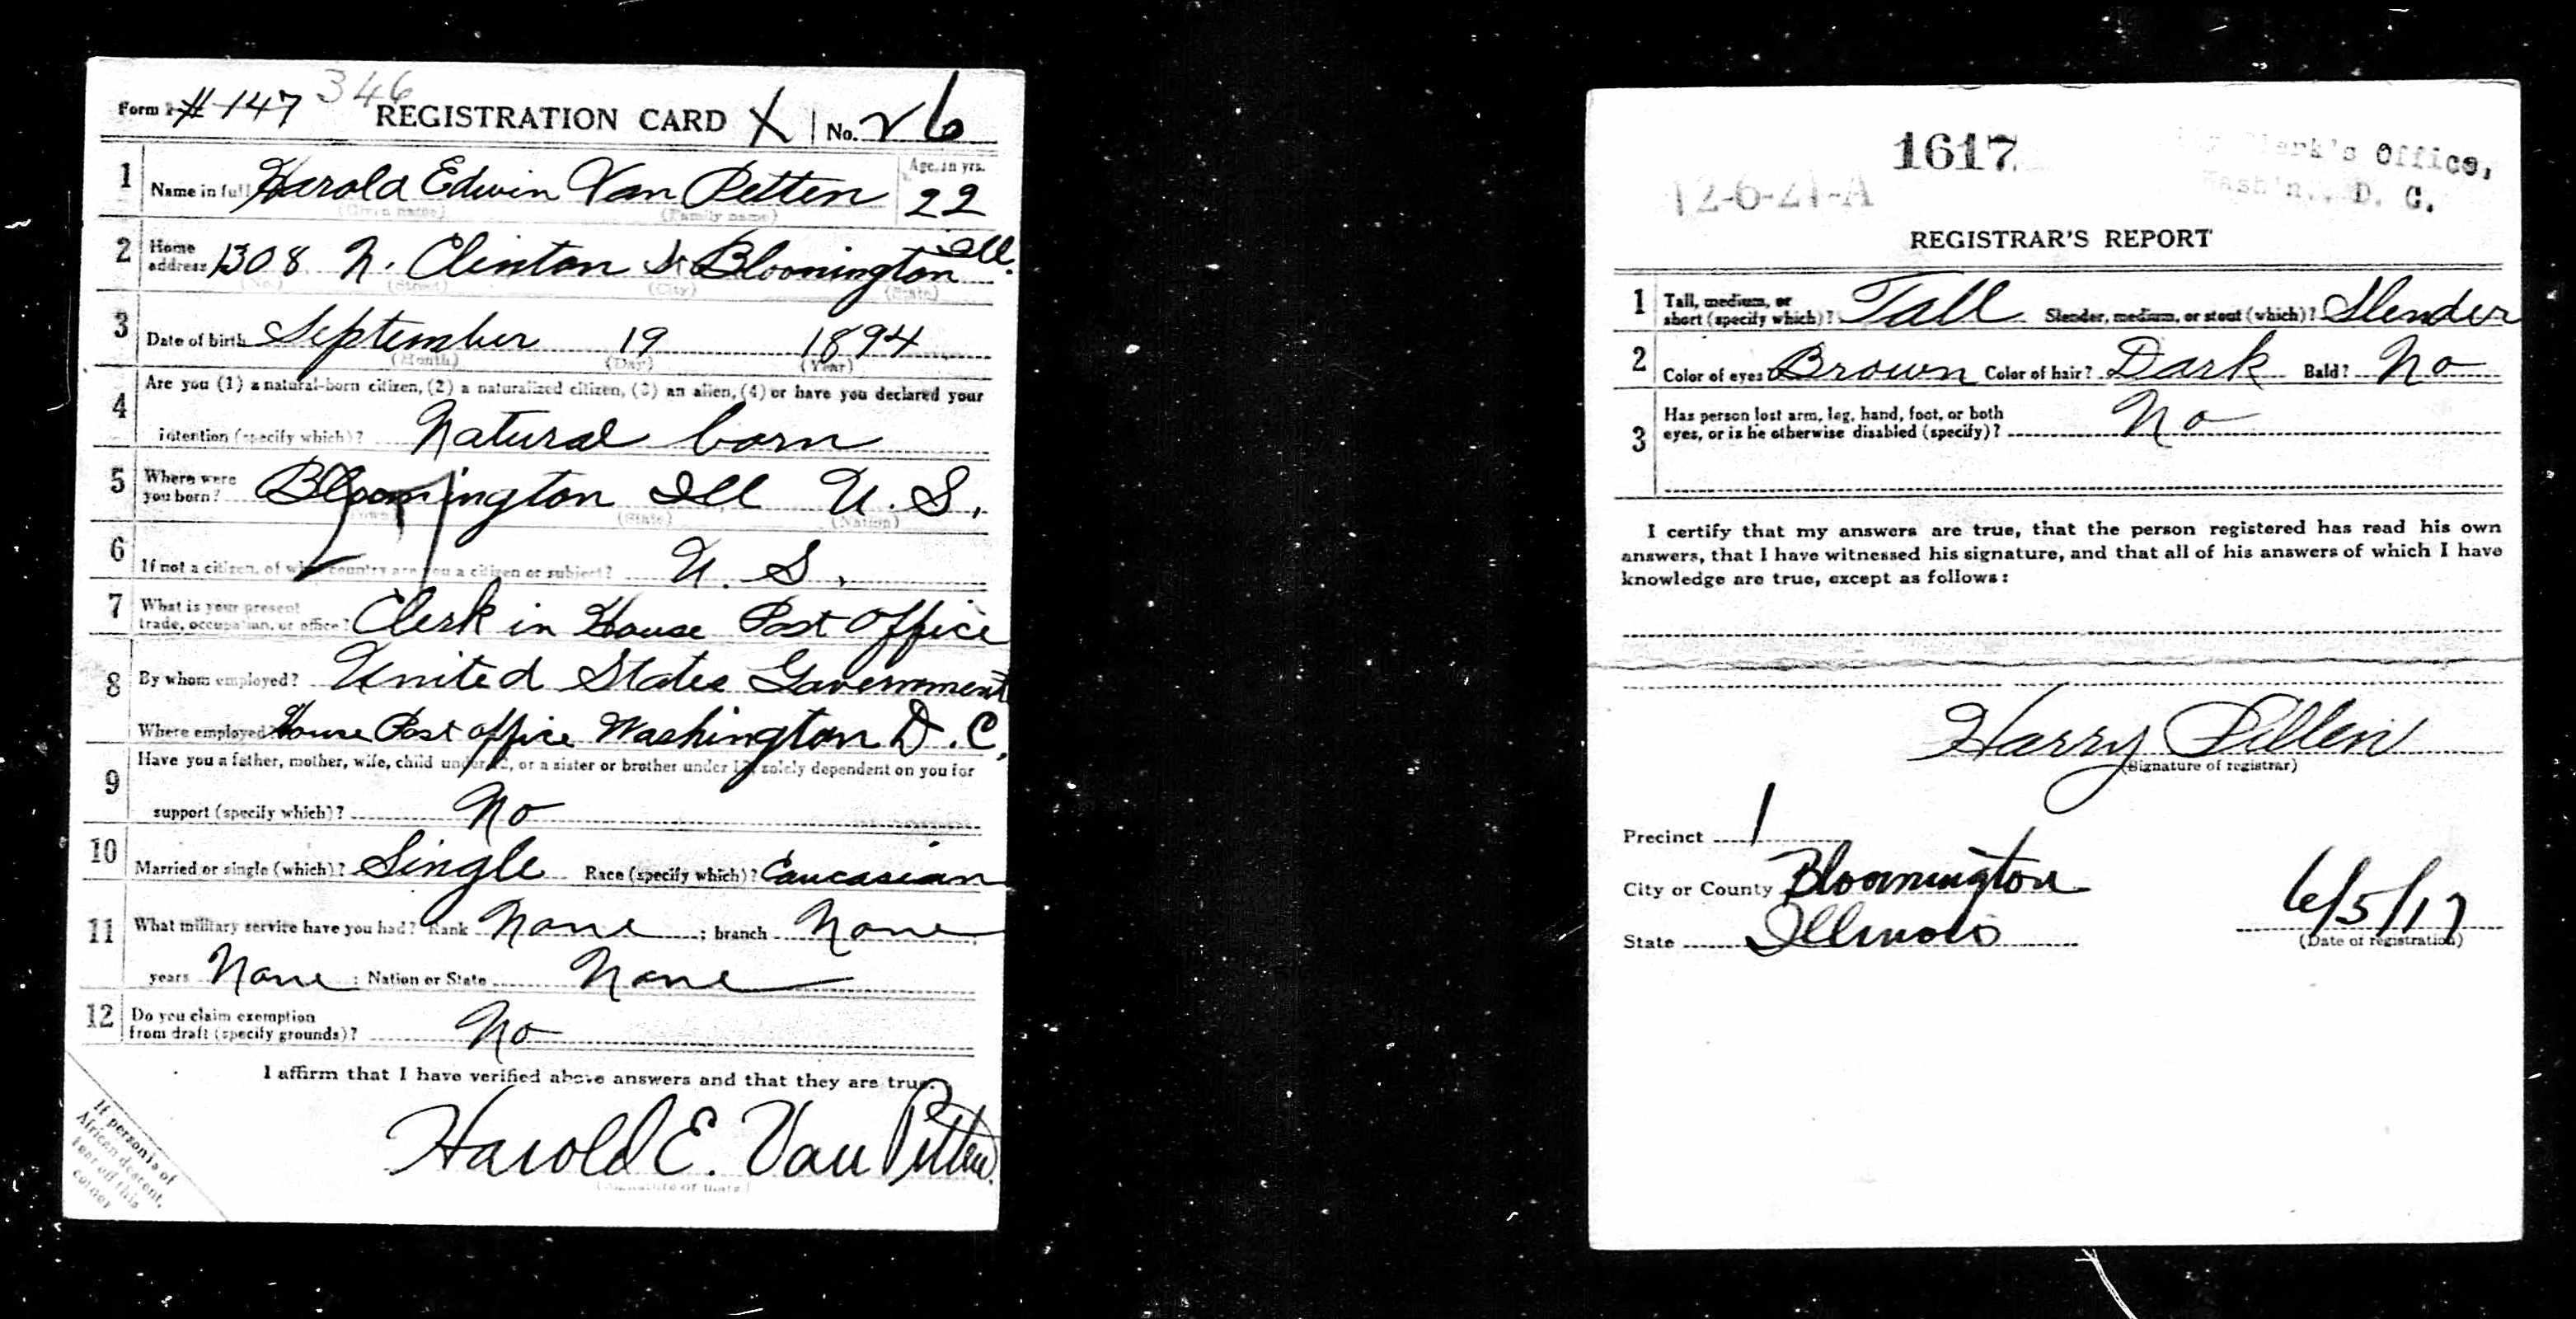 Form 1 # 147 346 REGISTRATION CARD X No. 26
1 Name in full Harold Edwin Van Petten Age, in yrs. 22
(Given name) (Family name)
2 Home address 1308 N. Clinton St Bloomington Ill.
(No.) (Street) (City) (State)
3 Date of birth September 19 1894
(Month) (Day) (Year)
4 Are you (1) a natural-born citizen, (2) a naturalized citizen, (3) an alien, (4) or have you declared your
intention (specify which)? Natural born
5 Where were you born? Bloomington Ill U. S.
(Town) (State) (Nation)
6 If not a citizen, of what country are you a citizen or subject? U. S.
7 What is your present trade, occupation, or office? Clerk in House Post Office
8 By whom employed? United States Government
Where employed House Post office Washington D. C.
9 Have you a father, mother, wife, child under 12, or a sister or brother under 12, solely dependent on you for
support (specify which)? No
10 Married or single (which)? Single Race (specify which)? Caucasian
11 What military service have you had? Rank None ; branch None ;
years None ; Nation or State None
12 Do you claim exemption from draft (specify grounds)? No
I affirm that I have verified above answers and that they are true.
Harold E. Van Petten.
(Signature or mark)
If person is of
African descent,
tear off this
corner
1617
12-6-21-A
Clerk's Office,
Wash'n., D. C.
REGISTRAR'S REPORT
1 Tall, medium, or short (specify which)? Tall Slender, medium, or stout (which)? Slender
2 Color of eyes Brown Color of hair? Dark Bald? No
3 Has person lost arm, leg, hand, foot, or both
eyes, or is he otherwise disabled (specify)? No
I certify that my answers are true, that the person registered has read his own
answers, that I have witnessed his signature, and that all of his answers of which I have
knowledge are true, except as follows:
Harry
(Signature of registrar)
Precinct 1
City or County Bloomington
State Illinois 6/5/17
(Date of registration)